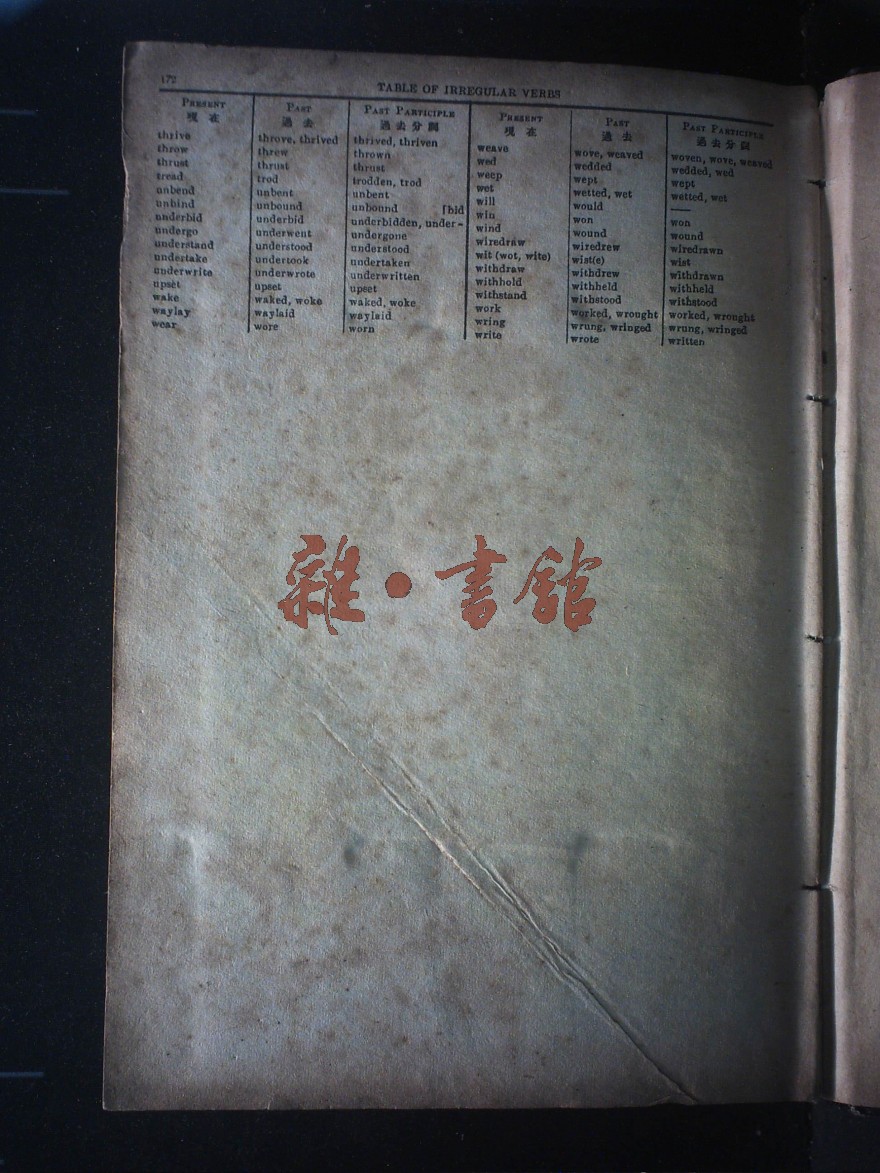 172
TABLE OF IRREGULAR VERBS
PRESENT PAST PAST PARTICIPLE
現在 過去 過去分詞
thrive throve, thrived thrived, thriven
throw threw thrown
thrust thrust thrust
tread trod trodden, trod
unbend unbent unbent
unbind unbound unbound [bid
underbid underbid underbidden, under-
undergo underwent undergone
understand understood understood
undertake undertook undertaken
underwrite underwrote underwritten
upset upset upset
wake waked, woke waked, woke
waylay waylaid waylaid
wear wore worn
PRESENT PAST PAST PARTICIPLE
現在 過去 過去分詞
weave wove, weaved woven, wove, weaved
wed wedded wedded, wed
weep wept wept
wet wetted, wet wetted, wet
will would —
win won won
wind wound wound
wiredraw wiredrew wiredrawn
wit (wot, wite) wist(e) wist
withdraw withdrew withdrawn
withhold withheld withheld
withstand withstood withstood
work worked, wrought worked, wrought
wring wrung, wringed wrung, wringed
write wrote written
雜·書館